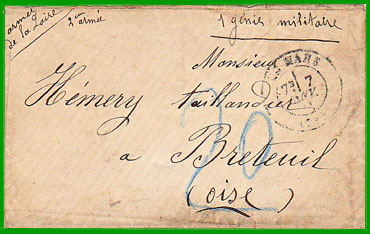 armée
de la Loire
2em armée
génie militaire
Monsieur
Hémery taillandier
a Breteuil
(oise)
20
MANS
7
JANV.